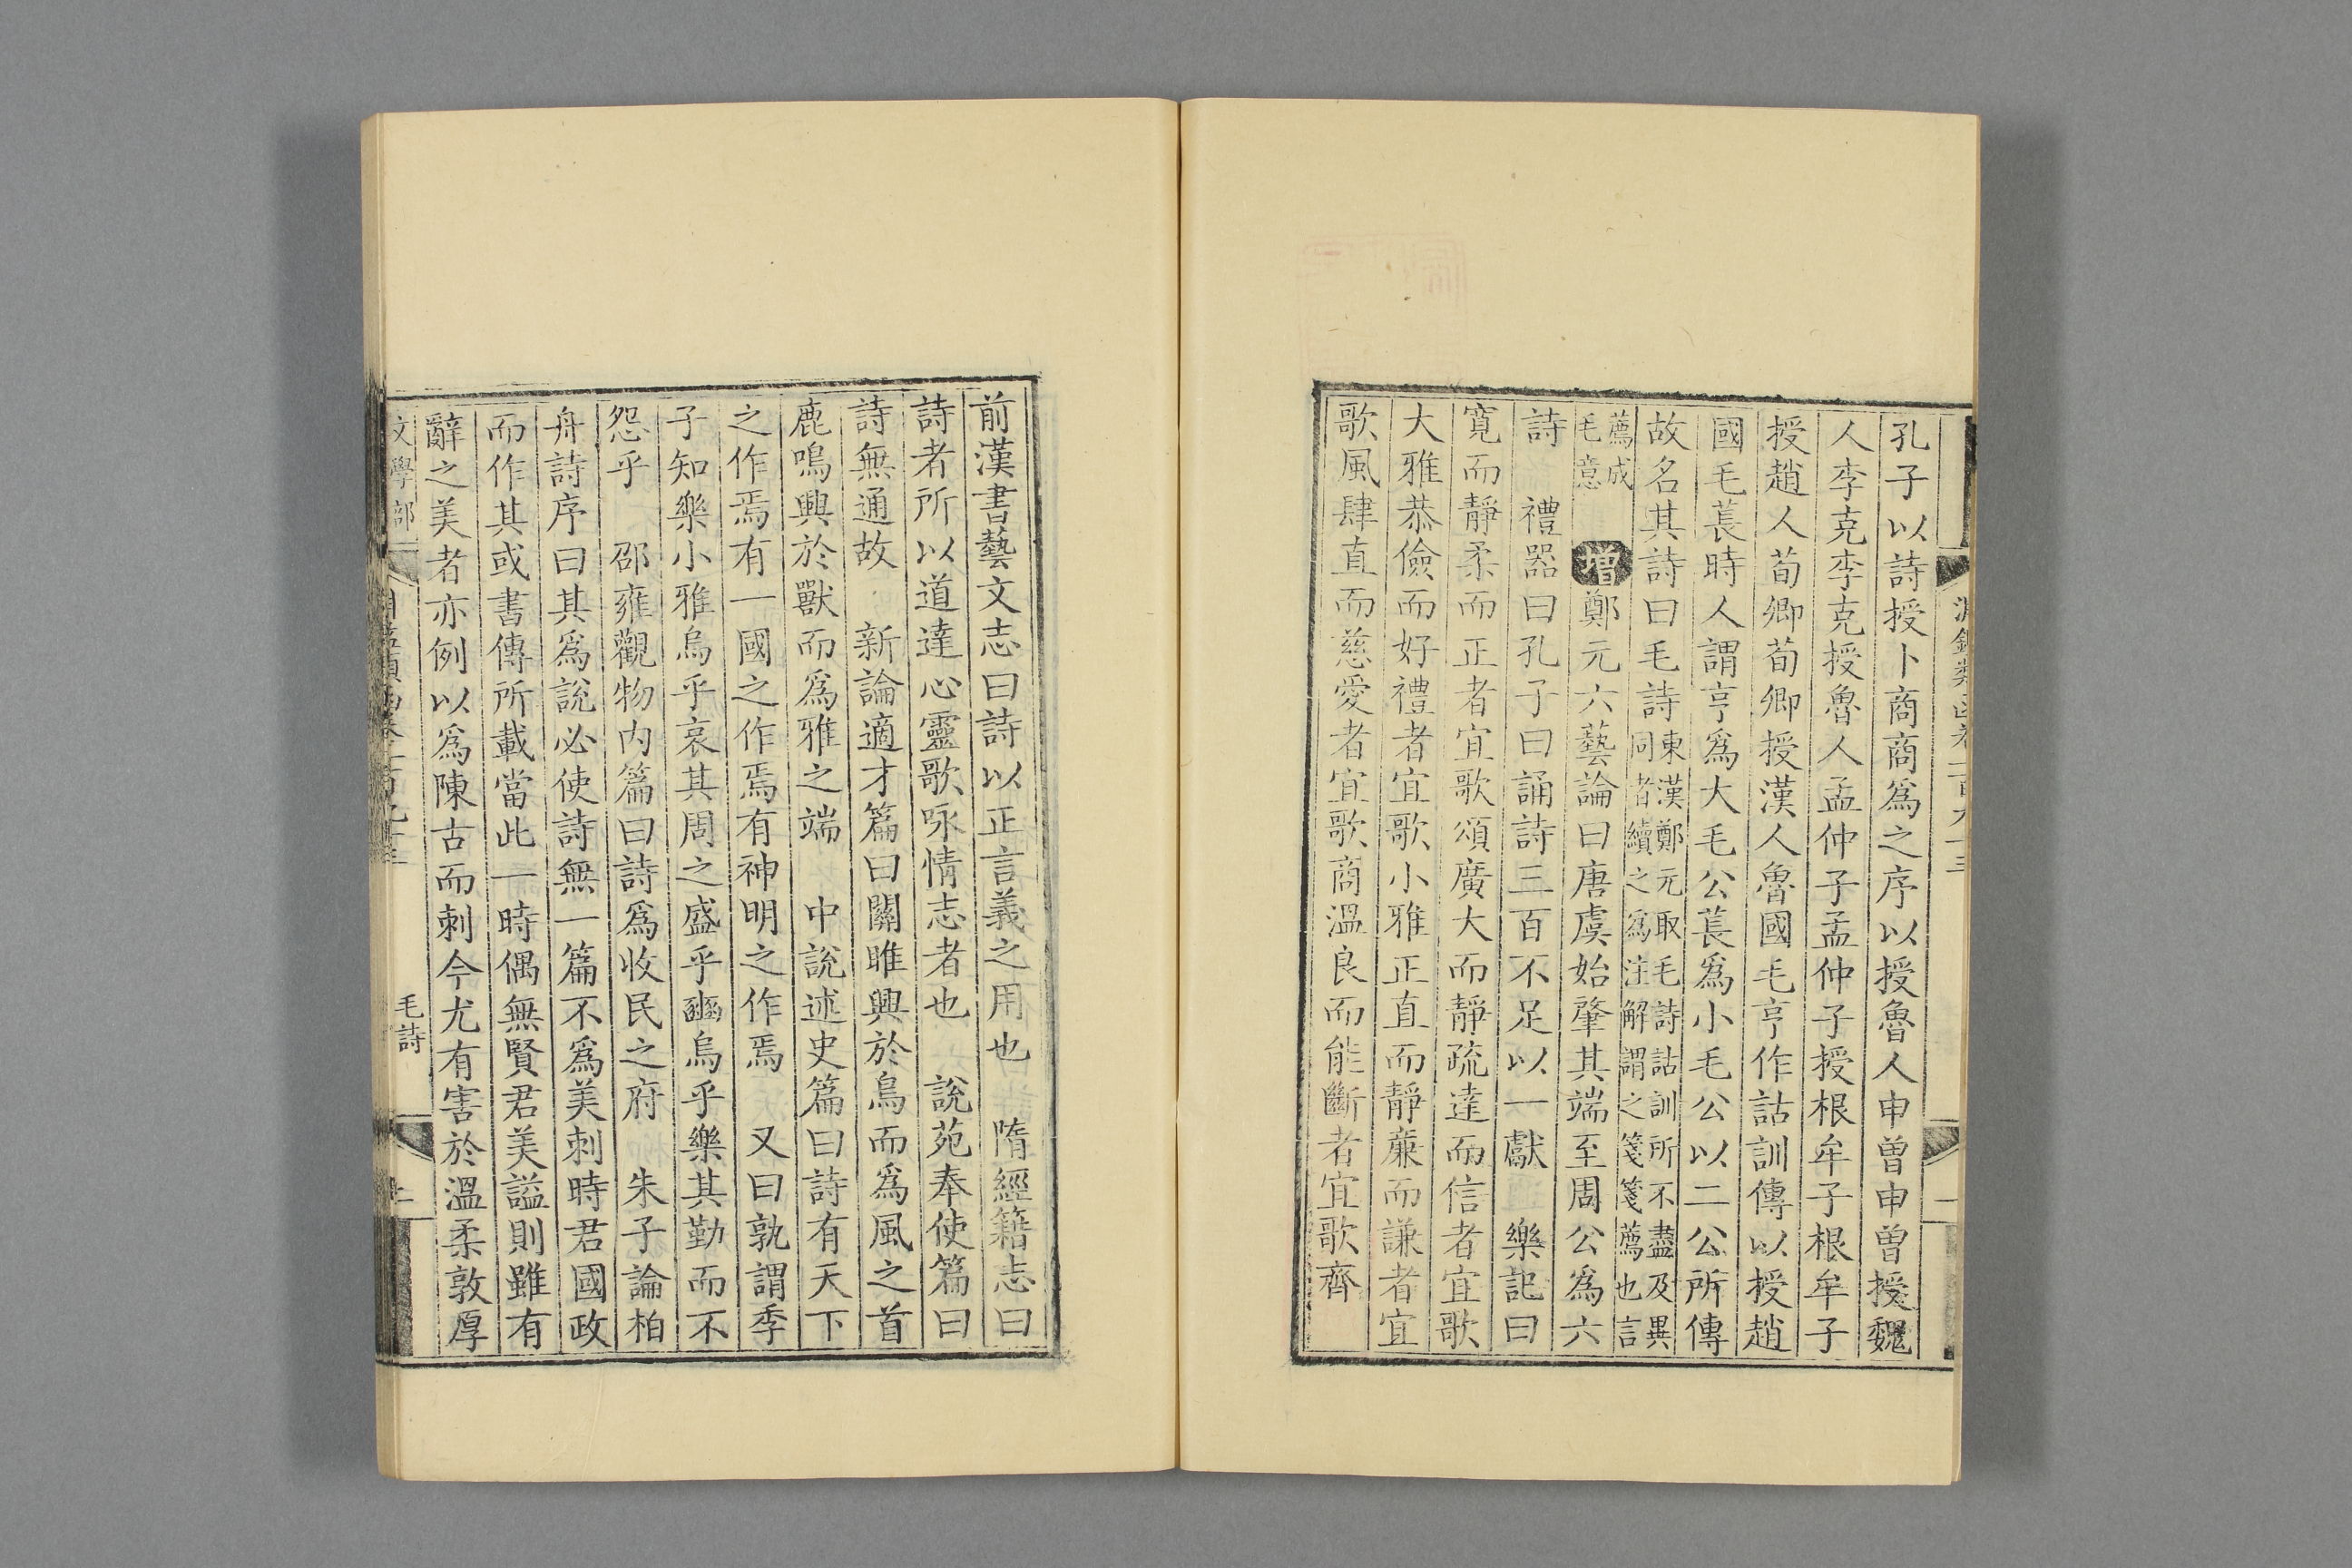 孔子以詩授卜商商爲之序以授魯人申曾申曾授魏
人李克李克授魯人孟仲子孟仲子授根牟子根牟子
授趙人荀卿荀卿授漢人魯國毛亨作詁訓傳以授趙
國毛萇時人謂亨爲大毛公萇爲小毛公以二公所傳
故名其詩曰毛詩東漢鄭元取毛詩詁訓所不盡及異
同者續之爲注解謂之箋箋薦也言
薦成
毛意
增鄭元六藝論曰唐虞始肇其端至周公爲六
詩　禮器曰孔子曰誦詩三百不足以一獻　樂記曰
寬而靜柔而正者宜歌頌廣大而靜疏達而信者宜歌
大雅恭儉而好禮者宜歌小雅正直而靜廉而謙者宜
歌風肆直而慈愛者宜歌商溫良而能斷者宜歌齊
前漢書藝文志曰詩以正言義之用也　隋經籍志曰
詩者所以道達心靈歌咏情志者也　說苑奉使篇曰
詩無通故　新論適才篇曰關雎興於鳥而爲風之首
鹿鳴興於獸而爲雅之端　中說述史篇曰詩有天下
之作焉有一國之作焉有神明之作焉　又曰孰謂季
子知樂小雅烏乎哀其周之盛乎豳烏乎樂其勤而不
怨乎　邵雍觀物內篇曰詩爲收民之府　朱子論柏
舟詩序曰其爲說必使詩無一篇不爲美刺時君國政
而作其或書傳所載當此一時偶無賢君美謚則雖有
辭之美者亦例以爲陳古而刺今尤有害於溫柔敦厚
文學部
毛詩